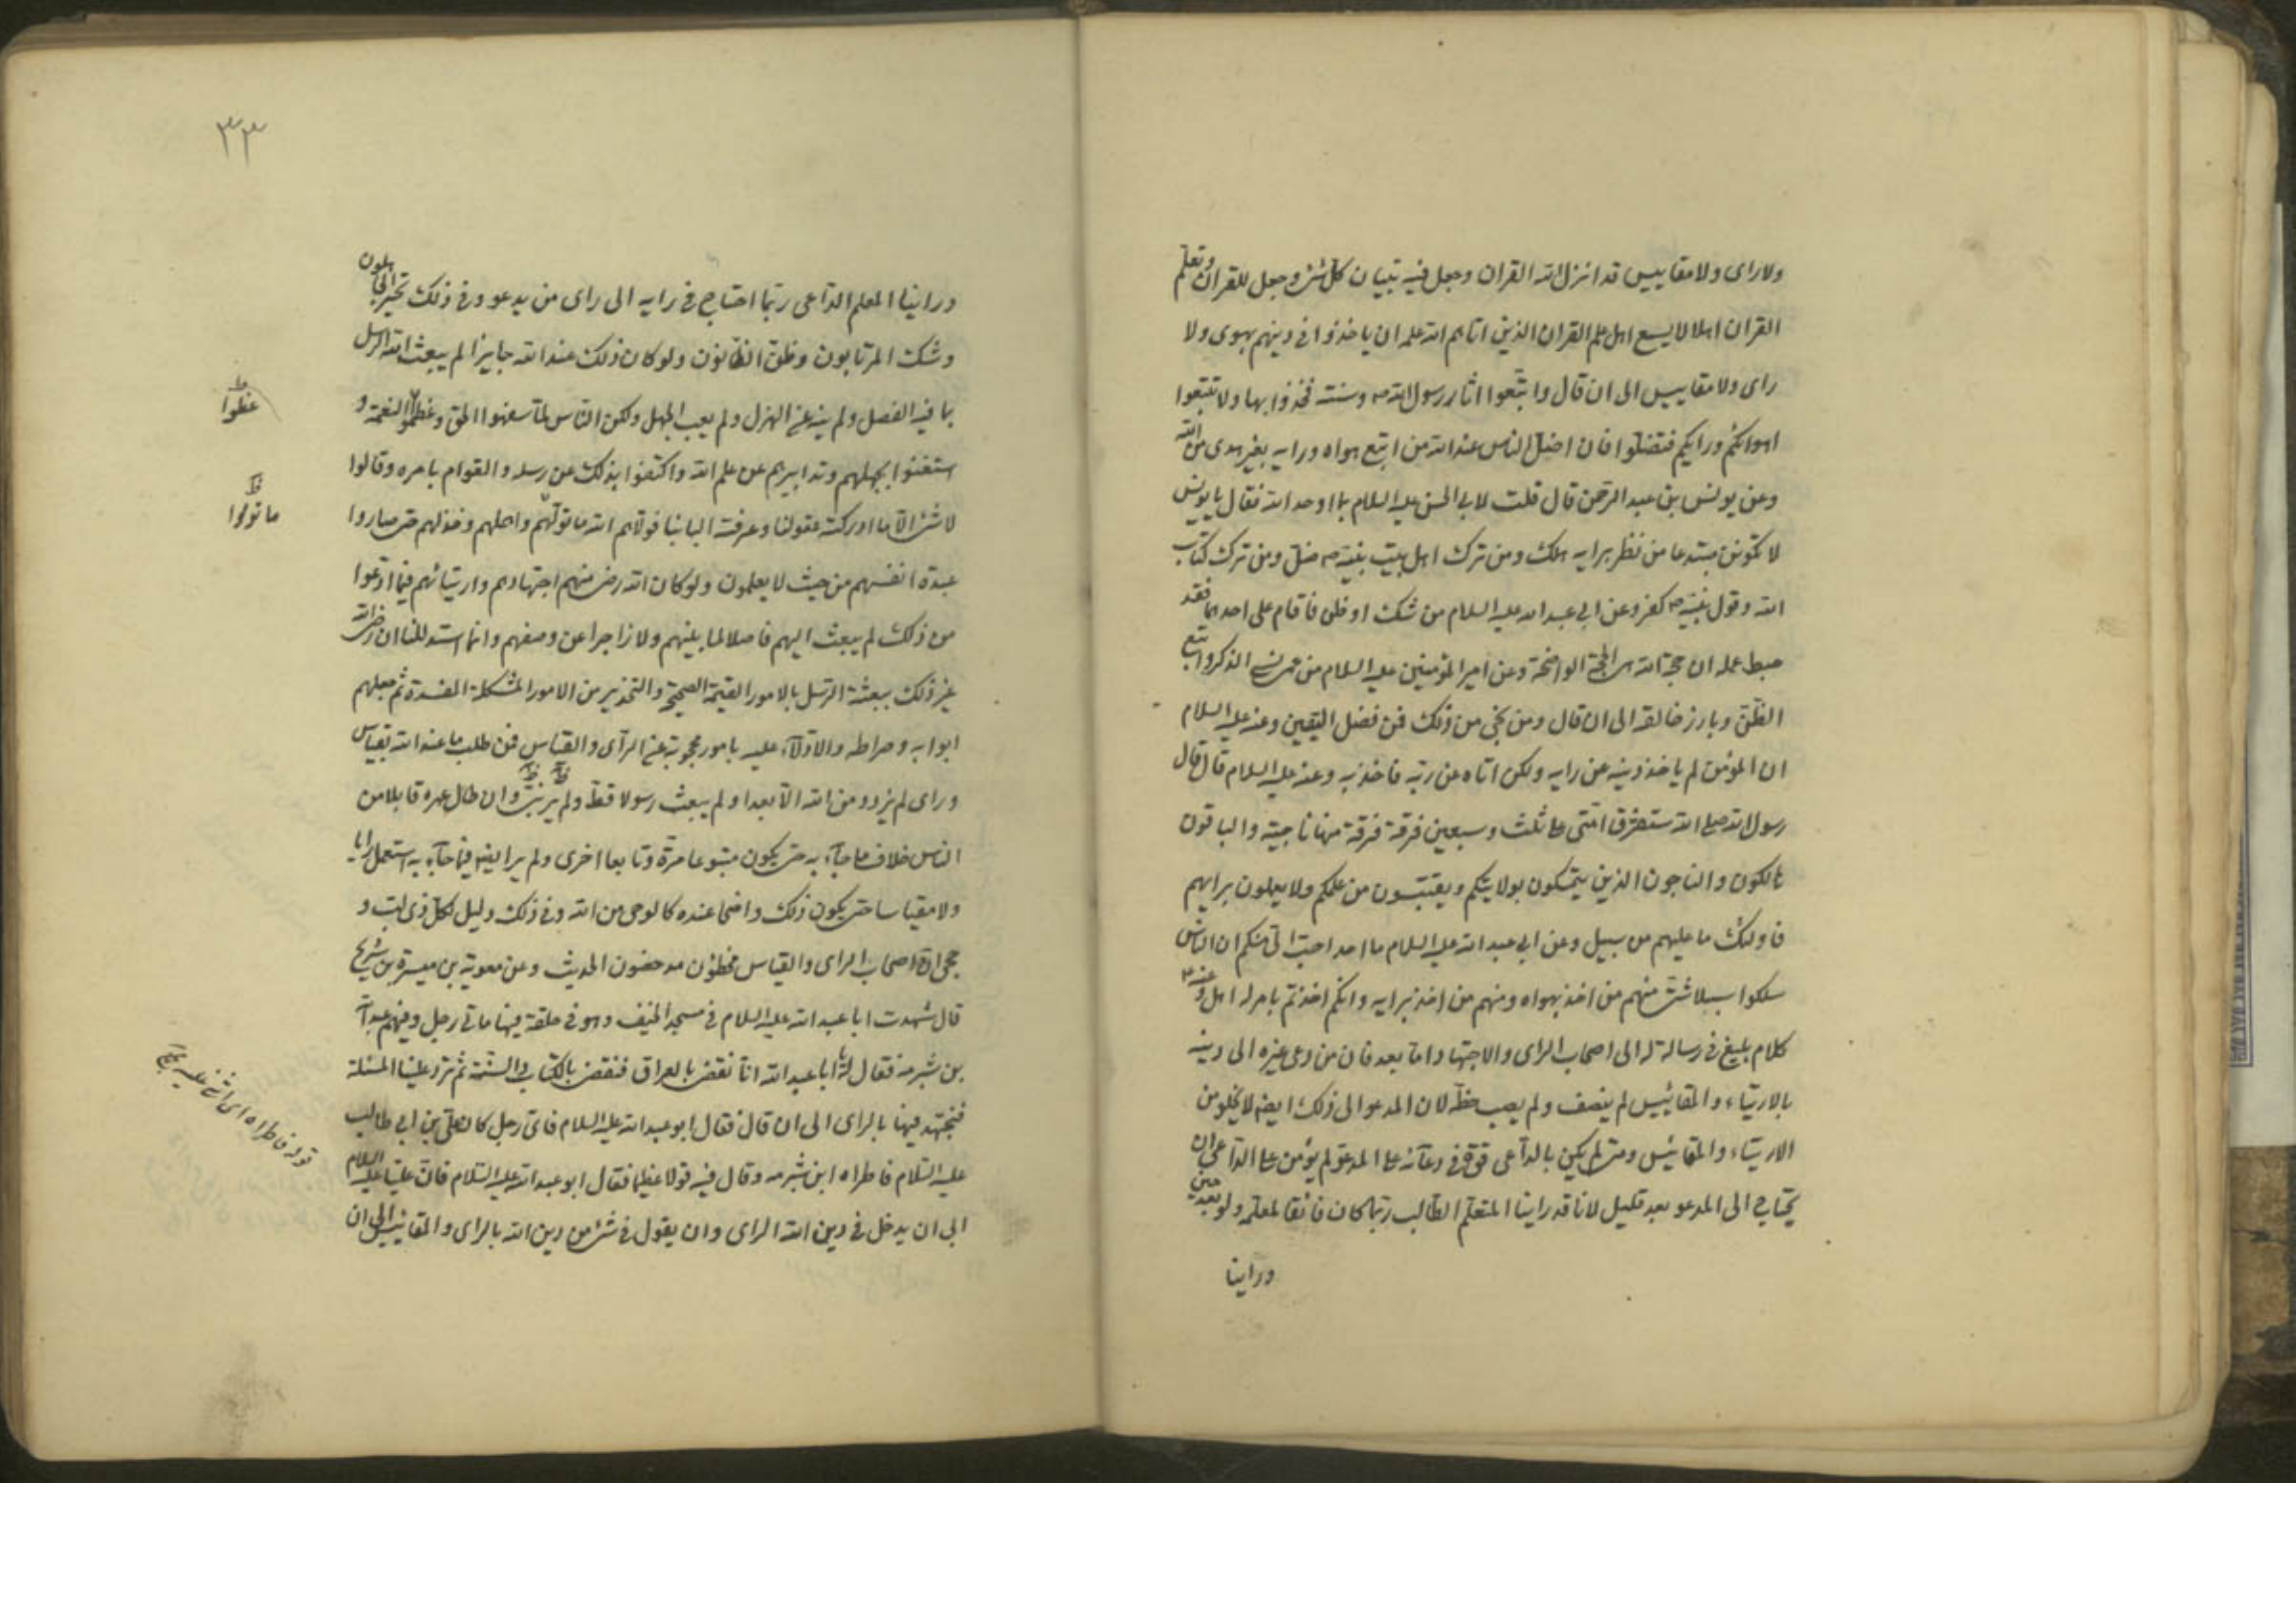 ولا رای ولا مقاییس قد انزل الله القران وجعل فیه تبیان کل شئ وجعل للقران وتعلم
القران اهلا لا یسع اهل علم القران الذین اتاهم الله علمه ان یاخذوا فی دینهم بهوی ولا
رای ولا مقاییس الی ان قال واتبعوا اثار رسول الله ص وسنته فخذوا بها ولا تتبعوا
اهوائکم ورایکم فتضلوا فان اضل الناس عند الله من اتبع هواه ورایه بغیر هدی من الله
وعن یونس بن عبد الرحمن قال قلت لابی الحسن علیه السلام بما اوحد الله فقال یا یونس
لا تکونن مبتدعا من نظر برایه هلک ومن ترک اهل بیت نبیه ص ضل ومن ترک کتاب
الله وقول نبیه ص کفر وعن ابی عبد الله علیه السلام من شک او ظن فاقام علی احدهما فقد
حبط عمله ان حجة الله هی الحجة الواضحة وعن امیر المؤمنین علیه السلام من عمی نسی الذکر واتبع
الظن وبارز خالقه الی ان قال ومن نجی من ذلک فمن فضل الیقین وعنه علیه السلام
ان المؤمن لم یاخذ دینه عن رایه ولکن اتاه عن ربه فاخذ به وعنه علیه السلام قال قال
رسول الله صلی الله ستفترق امتی علی ثلث وسبعین فرقة فرقة منها ناجیة والباقون
هالکون والناجون الذین یتمسکون بولایتکم ویقتبسون من علمکم ولا یعملون برایهم
فاولئک ما علیهم من سبیل وعن ابی عبد الله علیه السلام ما احد احب الی منکم ان الناس
سلکوا سبلا شتی منهم من اخذ بهواه ومنهم من اخذ برایه وانکم اخذتم بامر له اصل وعنه ع
کلام بلیغ فی رسالة له الی اصحاب الرای والاجتهاد اما بعد فان من دعی غیره الی دینه
بالارتیاء والمقائیس لم ینصف ولم یصب حظه لان المدعو الی ذلک ایضا لا یخلو من
الارتیاء والمقائیس ومتی لم یکن بالداعی قوة فی دعائه علی المدعو لم یؤمن علی الداعی ان
یحتاج الی المدعو بعد قلیل لانا قد راینا المتعلم الطالب ربما کان فائقا لمعلم ولو بعد حین
وراینا
٣٣
وراینا المعلم الداعی ربما احتاج فی رایه الی رای من یدعو وفی ذلک تحیر الجاهلون
وشک المرتابون وظن الظانون ولو کان ذلک عند الله جایزا لم یبعث الله الرسل
بما فیه الفصل ولم ینه عن الهزل ولم یعب الجهل ولکن الناس لما سفهوا الحق وغمطوا النعمة و
استغنوا بجهلهم وتدابیرهم عن علم الله واکتفوا بذلک عن رسله والقوام بامره وقالوا
لا شئ الا ما ادرکته عقولنا وعرفته البابنا فولاهم الله ما تولهم واهملهم وخذلهم حتی صاروا
عبدة انفسهم من حیث لا یعلمون ولو کان الله رضی منهم اجتهادهم وارتیائهم فیما ادعوا
من ذلک لم یبعث الیهم فاصلا لما بینهم ولا زاجرا عن وصفهم وانما استدللنا ان رضی الله
غیر ذلک ببعثة الرسل بالامور القیمة الصحیحة والتحذیر من الامور المشکلة المفسدة ثم جعلهم
ابوابه وصراطه والادلاء علیه بامور محجوبة عن الرای والقیاس فمن طلب ما عند الله بقیاس
ورای لم یزدد من الله الا بعدا ولم یبعث رسولا قط ولم یر نبی وان طال عمره قابلا من
الناس خلاف ما جاء به حتی یکون متبوعا مرة وتابعا اخری ولم یر ایضا فیما جاء به استعمل رایا
ولا مقیاسا حتی یکون ذلک واضحا عنده کالوحی من الله وفی ذلک دلیل لکل ذی لب و
حجی ان اصحاب الرای والقیاس مخطؤن مدحضون الحدیث وعن معویة بن میسرة بن شریح
قال شهدت ابا عبد الله علیه السلام فی مسجد الخیف وهو فی حلقة فیها مائتی رجل وفیهم عبد الله
بن شبرمه فقال له یا ابا عبد الله انا نقضی بالعراق فنقضی بالکتاب والسنة ثم ترد علینا المسئلة
فنجتهد فیها بالرای الی ان قال فقال ابو عبد الله علیه السلام فای رجل کان علی بن ابی طالب
علیه السلام فاطراه ابن شبرمه وقال فیه قولا عظیما فقال ابو عبد الله علیه السلام فان علیا علیه السلام
ابی ان یدخل فی دین الله الرای وان یقول فی شئ من دین الله بالرای والمقائیس الی ان
غمطوا ظ
ما تولوا ظ
قوله فاطراه ای اثنی علیه